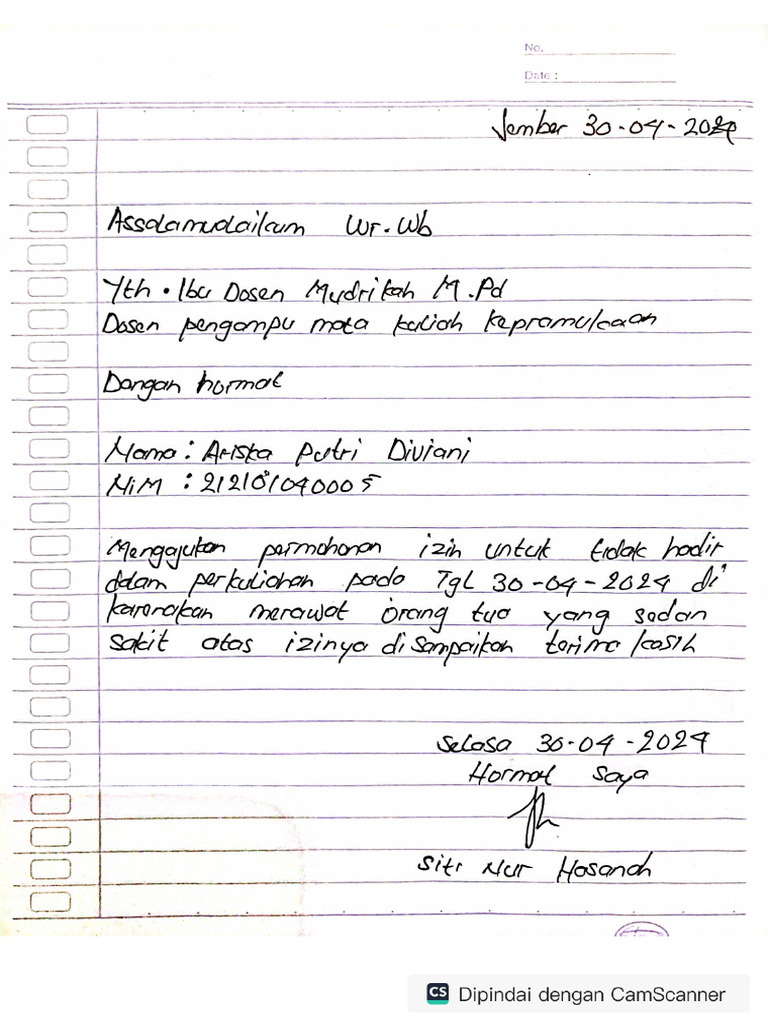 No.
Date :
Jember 30-04-2024
Assalamualaikum Wr. Wb
Yth. Ibu Dosen Mudrikah M.Pd
Dosen pengampu mata kuliah Kepramukaan
Dangan hormat
Nama : Ariska Putri Diviani
NiM : 212101040005
Mengajukan permohonan izin untuk tidak hadir
dalam perkuliahan pada Tgl 30-04-2024 di
karenakan merawat orang tua yang sedan
sakit atas izinya disampaikan terima kasih
Selasa 30-04-2024
Hormat saya
Siti Nur Hasanah
CS Dipindai dengan CamScanner